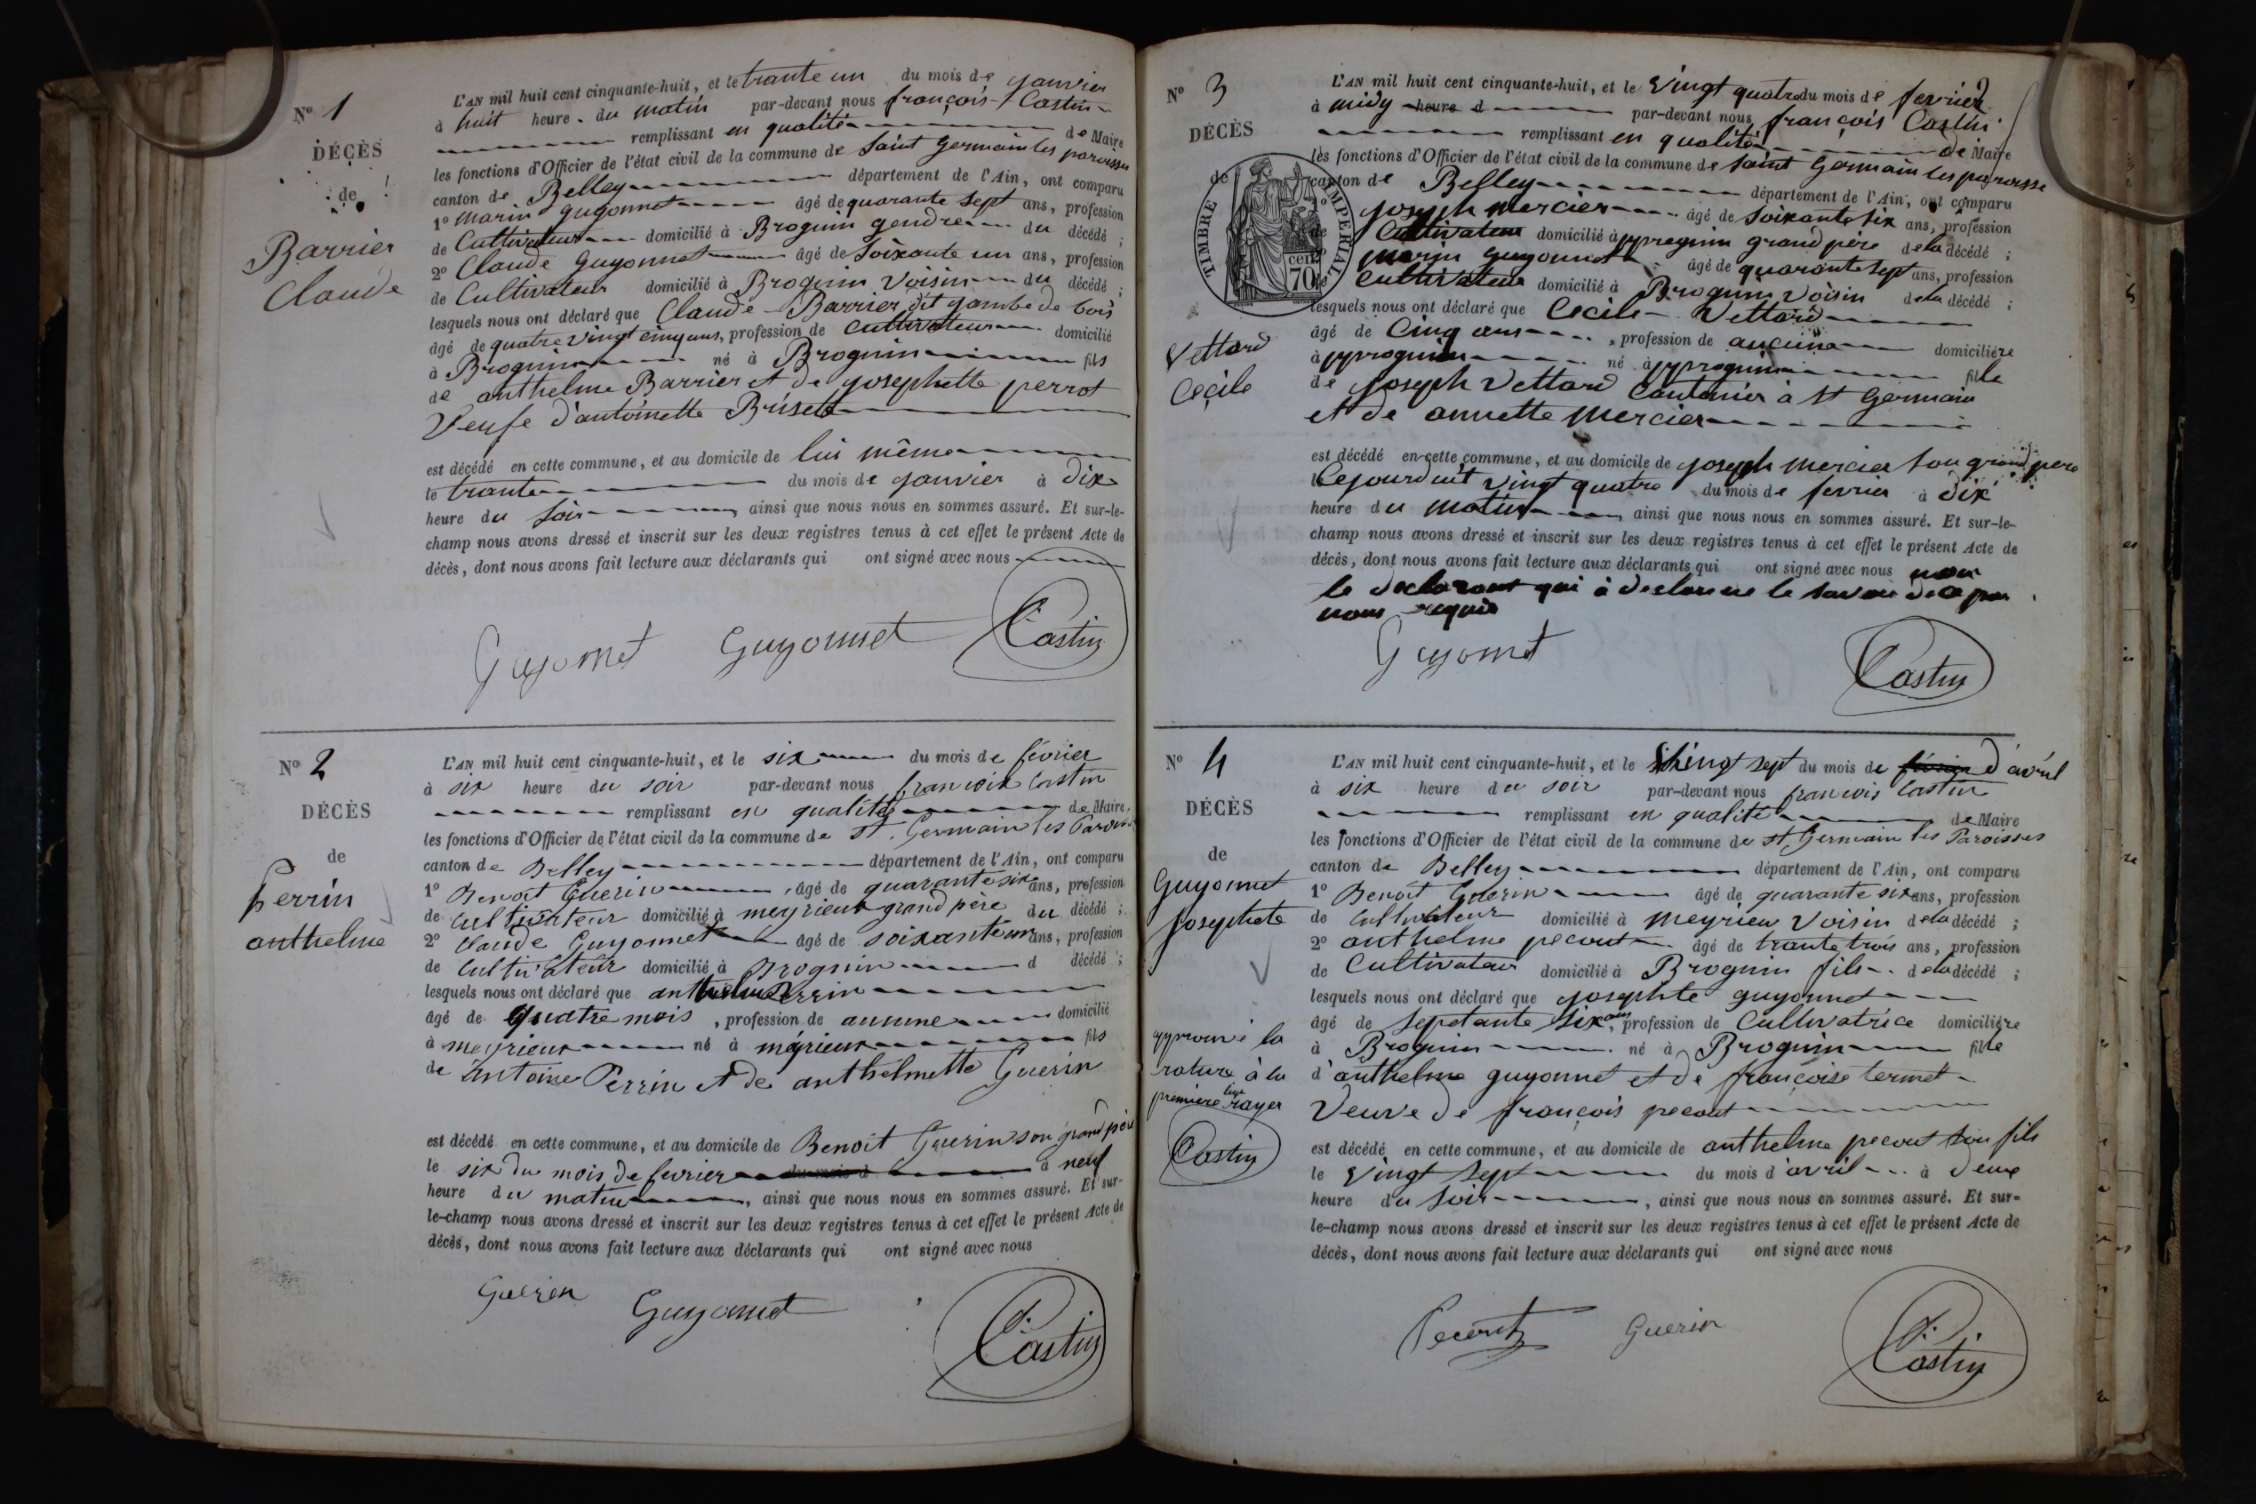 N° 1
DÉCÈS
de
Barrier
Claude
L'AN mil huit cent cinquante-huit, et le trante un du mois de janvier
à huit heure du matin par-devant nous françois Castin
remplissant en qualité de Maire
les fonctions d'Officier de l'état civil de la commune de saint Germain les paroisses
canton de Belley département de l'Ain, ont comparu
1° Marin guyonnet âgé de quarante sept ans, profession
de Cultivateur domicilié à Brognin gendre du décédé ;
2° Claude guyonnet âgé de soixante un ans, profession
de Cultivateur domicilié à Brognin voisin du décédé ;
lesquels nous ont déclaré que Claude Barrier dit jambe de bois
âgé de quatre vingt cinq ans, profession de cultivateur domicilié
à Brognin né à Brognin fils
de anthelme Barrier et de josephette perrot
Veufe d'antoinette Briset
est décédé en cette commune, et au domicile de lui même
le trante du mois de janvier à dix
heure du soir ainsi que nous nous en sommes assuré. Et sur-le-
champ nous avons dressé et inscrit sur les deux registres tenus à cet effet le présent Acte de
décès, dont nous avons fait lecture aux déclarants qui ont signé avec nous
Guyonnet Guyonnet Castin
N° 2
DÉCÈS
de
Perrin
anthelme
L'AN mil huit cent cinquante-huit, et le six du mois de février
à six heure du soir par-devant nous francois Castin
remplissant en qualité de Maire
les fonctions d'Officier de l'état civil de la commune de St. Germain les Paroisses
canton de Belley département de l'Ain, ont comparu
1° Benoit Guerin âgé de quarante six ans, profession
de cultivateur domicilié à meyrieux grand père du décédé ;
2° Claude Guyonnet âgé de soixante un ans, profession
de cultivateur domicilié à Brognin d décédé ;
lesquels nous ont déclaré que anthelme Perrin
âgé de quatre mois, profession de aucune domicilié
à meyrieux né à meyrieux fils
de antoine Perrin et de anthelmette Guerin
est décédé en cette commune, et au domicile de Benoit Guerin son grand père
le six du mois de fevrier du mois d à neuf
heure du matin, ainsi que nous nous en sommes assuré. Et sur-
le-champ nous avons dressé et inscrit sur les deux registres tenus à cet effet le présent Acte de
décès, dont nous avons fait lecture aux déclarants qui ont signé avec nous
Guerin Guyonnet Castin
N° 3
DÉCÈS
de
TIMBRE IMPERIAL
70 cent
Vettard
Cécile
L'AN mil huit cent cinquante-huit, et le vingt quatre du mois de fevrier
à midy heure d par-devant nous françois Castin
remplissant en qualité de Maire
les fonctions d'Officier de l'état civil de la commune de saint Germain les paroisse
canton de Belley département de l'Ain, ont comparu
1° joseph mercier âgé de soixante six ans, profession
de Cultivateur domicilié à ppregnin grand père de la décédé ;
2° marin guyonnet âgé de quarante sept ans, profession
de cultivateur domicilié à Brognin voisin de la décédé ;
lesquels nous ont déclaré que Cécile Vettard
âgé de Cinq ans, profession de aucune domiciliére
à pprognin né à pprognin fille
de joseph Vettard Cantonier à St Germain
et de annette mercier
est décédé en cette commune, et au domicile de joseph mercier son grand pere
le Cejourduit vingt quatre du mois de fevrier à dix
heure du matin ainsi que nous nous en sommes assuré. Et sur-le-
champ nous avons dressé et inscrit sur les deux registres tenus à cet effet le présent Acte de
décès, dont nous avons fait lecture aux déclarants qui ont signé avec nous non
le declarant qui à declare ne le savoir de ce par
nous requis
Guyonnet Castin
N° 4
DÉCÈS
de
Guyonnet
josephete
approuvé la
rature à la
premiere ligne rayer
Castin
L'AN mil huit cent cinquante-huit, et le vingt sept du mois de février d'avril
à six heure du soir par-devant nous francois Castin
remplissant en qualité de Maire
les fonctions d'Officier de l'état civil de la commune de St. Germain les Paroisses
canton de Belley département de l'Ain, ont comparu
1° Benoit Guerin âgé de quarante six ans, profession
de Cultivateur domicilié à meyrieu voisin de la décédé ;
2° anthelme pecout âgé de trante trois ans, profession
de Cultivateur domicilié à Brognin fils de la décédé ;
lesquels nous ont déclaré que josephte guyonnet
âgé de septante six ans, profession de Cultivatrice domiciliére
à Brognin né à Brognin fille
d'anthelme guyonnet et de françoise termet
Veuve de françois pecout
est décédé en cette commune, et au domicile de anthelme pecout son fils
le vingt sept du mois d'avril à deux
heure du soir, ainsi que nous nous en sommes assuré. Et sur-
le-champ nous avons dressé et inscrit sur les deux registres tenus à cet effet le présent Acte de
décès, dont nous avons fait lecture aux déclarants qui ont signé avec nous
Pecout Guerin Castin